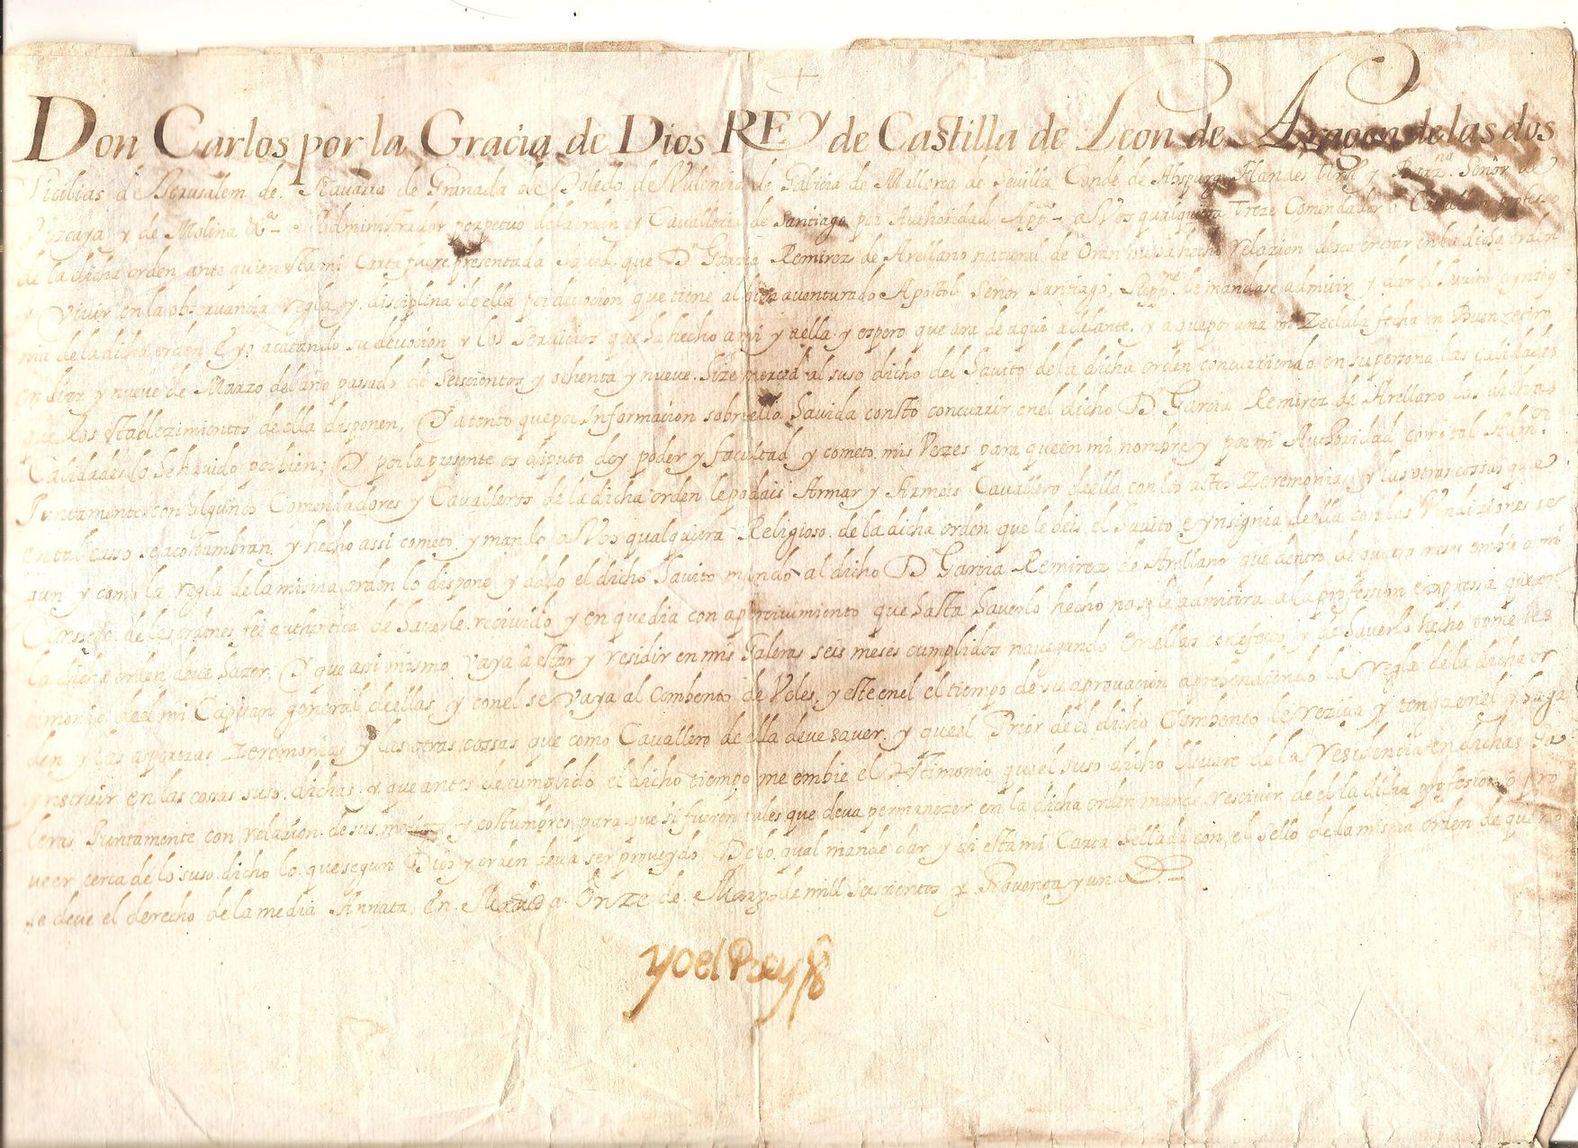 Don Carlos por la Gracia de Dios REy de Castilla de Leon de Aragon de las dos
Sicilias de Jerusalem de Navarra de Granada de Toledo de Valencia de Galicia de Mallorca de Sevilla Conde de Abspurg Flandes tirol y Señor de
Vizcaya y de Molina &ª Administrador perpetuo de la orden y Cavalleria de Santiago por Authoridad App.ª a Vos qualquiera Treze Comendador o Cavallero professo
de la dicha orden ante quien esta mi Carta fuere presentada Saved que D Garcia Remirez de Arellano natural de Oran me ha hecho relazion desea entrar en la dicha orden
y vivir en la observanzia regla y disciplina de ella por devocion que tiene al bien aventurado Apostol Señor Santiago, le mandase admitir y dar el havito e ynsig
nia de la dicha orden E yo acatando su devocion y los servicios que ha hecho a mi y a ella y espero que ara de aqui adelante, y a que por una mi Zedula fecha en Buen
en diez y nueve de Marzo del año passado de Seiscientos y ochenta y nueve hize merced al suso dicho del havito de la dicha orden concurriendo en su persona las calidades
que los establezimientos de ella disponen, Y atento que por Informacion sobre ello havida consto concurrir en el dicho D. Garcia Remirez de Arellano las dichas
Calidades lo he havido por bien; Y por la presente os diputo doy poder y facultad y cometo mis Vezes para que en mi nombre y por mi Authoridad como tal Adm.or
Juntamente con algunos Comendadores y Cavalleros de la dicha orden le podais Armar y Armeis Cavallero de ella con los actos Zeremonias y las otras cossas que
en tal casso se acostumbran, y hecho assi cometo y mando a Vos qualquiera Religioso de la dicha orden que le deis el havito e ynsignia de ella con las Vendiziones se
gun y como la regla de la misma orden lo dispone y dado el dicho havito mando al dicho D Garcia Remirez de Arellano que dentro de quatro meses embie a mi
Conssejo de las ordenes fee authentica de haverle recivido y en que dia con apercivimiento que hasta haverlo hecho no se le admitira a la profession expressa que en
la dicha orden deve hazer, Y que assi mismo vaya a estar y residir en mis Galeras seis meses cumplidos navegando en ellas con efecto y de haverlo hecho tome tes
timonio de el mi Capitan general de ellas y con el se vaya al Combento de Veles, y este en el el tiempo de su aprovacion aprehendiendo la regla de la dicha or
den y las asperezas Zeremonias y las otras cossas que como Cavallero de ella deve saver, y que el Prior de el dicho Combento le reziva y tenga en el y haga
ynstruir en las cossas suso dichas y que antes de cumplido el dicho tiempo me embie el testimonio que el suso dicho llevare de la residencia en dichas Ga
leras Juntamente con relazion de sus meritos y costumbres para que si fueren tales que deva permanezer en la dicha orden mande resciuir de el la dicha profession o pro
veer cerca de lo suso dicho lo que segun Dios y orden deva ser proveydo; De lo qual mande dar y di esta mi Carta sellada con el sello de la misma orden de que no
se deve el derecho de la media Annata, En Madrid a Onze de Marzo de mill Seiscientos y Noventa y un
yo el Rey